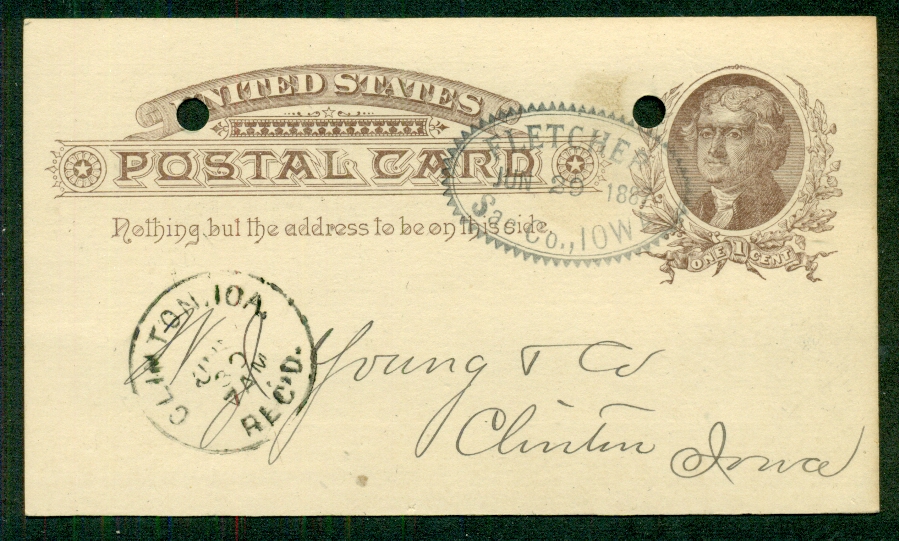 UNITED STATES
POSTAL CARD
Nothing but the address to be on this side.
FLETCHER
JUN 29 188
Sac Co., IOW
ONE 1 CENT
CLINTON, IOA.
JUN
30
7 AM
REC'D.
W J Young & Co
Clinton Iowa